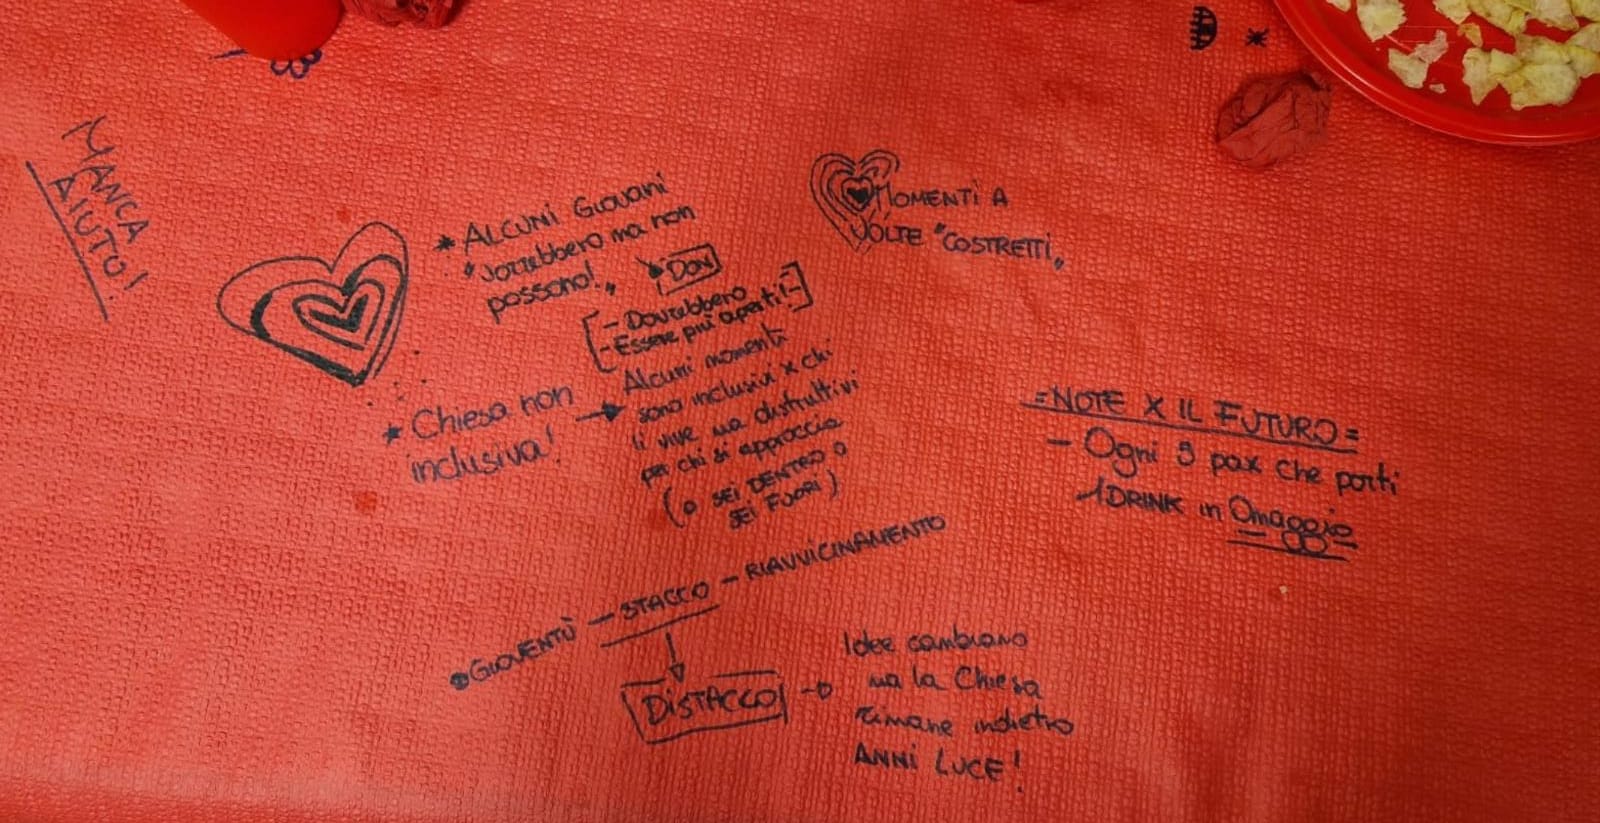 MANCA
AIUTO!
* ALCUNI GIOVANI
"vorrebbero ma non
possono!"
DON
[- Dovrebbero
- Essere più aperti! -]
* Chiesa non
inclusiva!
Alcuni momenti
sono inclusivi x chi
li vive ma distruttivi
per chi si approccia
(O SEI DENTRO O
SEI FUORI)
MOMENTI A
VOLTE "COSTRETTI"
= NOTE X IL FUTURO =
- Ogni 5 pax che porti
1 DRINK in Omaggio
• GIOVENTÙ - STACCO - RIAVVICINAMENTO
DISTACCO
Idee cambiano
ma la Chiesa
rimane indietro
ANNI LUCE!